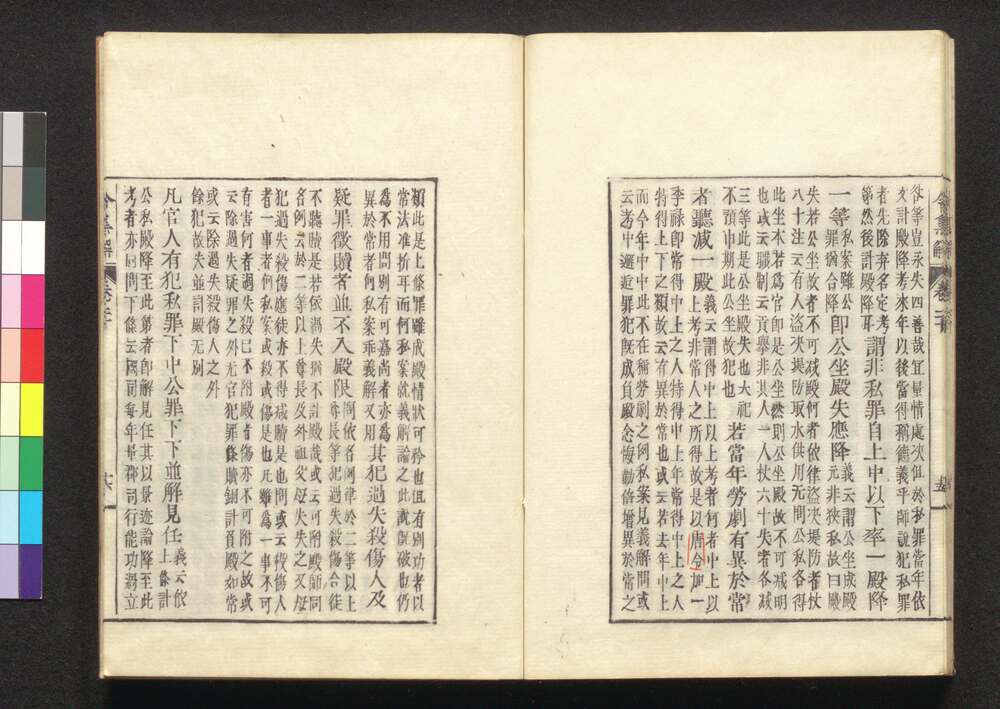 等豈永失四善哉宜量情處決但於私罪當年依
文計殿降考來年以後當得稱德義乎師說犯私罪
者先除弃名定考
第然後計殿降耳謂非私罪自上中以下率一殿降
一等私案雖公罪猶合降即公坐殿失應降義云謂公坐成殿元非挾私故曰殿
失若公坐故者不可减殿何者依律盜決堤防者杖
八十注云有人盜決堤防取水供用无問公私各得
此坐本若爲官即是公坐然則公坐殿故不可减明
也或云職制云貢舉非其人一人杖六十失者各减
三等此是公坐殿失也大祀
不預申期此公坐故犯也若當年勞劇有異於常
者聽减一殿義云謂得中上以上考者何者中上以上考非常人之所得故是以唐令加一
季祿即常得中上之人持得中上年常得中上之人
特得上下之類故云有異於常也或云若去年中上
而今年中中此不在稱勞劇之例私案見義解問或
云考中遷近罪犯既成負殿念悔勤倍增異於常之
類此是上條罪雖成殿情狀可矜也且有別功者以
常法准折耳而何私案就義解論之此既破也仍
爲不用問別有可嘉尚者亦爲
異於常者何私案乖義解又用其犯過失殺傷人及
疑罪徵贖者並不入殿限問依名例律於二等以上尊長等犯過失殺傷合徒
不聽贖是若依過失猶不計殿哉或云可附殿師同
名例云於二等尊長及外祖父母失失之又反
犯過失殺傷應徒亦不得减贖是也問或云殺傷人
者一事者何私案或殺或傷是也凡雖爲一事不可
有害何者過失殺已不附殿者傷亦不可附之故或
云除過失疑罪之外无官犯罪條贖銅計負殿如常
或云除過失殺傷人之外
餘犯故失並計殿无別
凡官人有犯私罪下中公罪下下並解見任義云依上條計
公私殿降至此第者即解見任其以景迹論降至此
考者亦同問下條云國司每年量郡司行能功過立